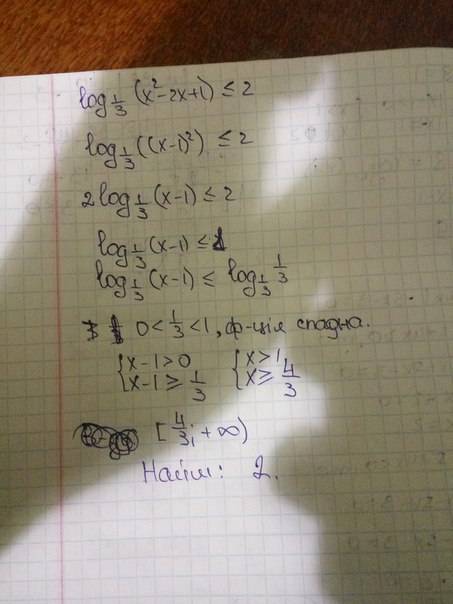 log_{1/3} (x²-2x+1) ≤ 2
log_{1/3} ((x-1)²) ≤ 2
2log_{1/3} (x-1) ≤ 2
log_{1/3} (x-1) ≤ 1
log_{1/3} (x-1) ≤ log_{1/3} 1/3
0 < 1/3 < 1, ф-ція спадна.
{x-1>0 {x>1
{x-1≥ 1/3 {x≥ 4/3
[4/3; +∞)
Найм: 2.